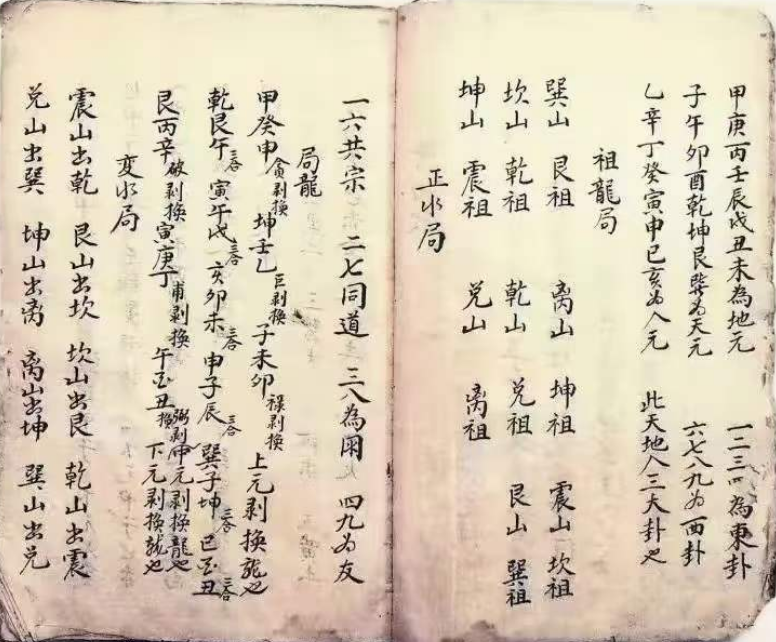 甲庚丙壬辰戌丑未為地元 一二三四為東卦
子午卯酉乾坤艮巽为天元 六七八九为西卦
乙辛丁癸寅申巳亥为人元 此天地人三大卦也
祖龍局
巽山 艮祖 离山 坤祖 震山 坎祖
坎山 乾祖 乾山 兑祖 艮山 巽祖
坤山 震祖 兑山 离祖
正水局
一六共宗 二七同道 三八為朋 四九为友
局龍
甲癸申貪剥换 坤壬乙巨剥换 子未卯禄剥换 上元剥换龍也
乾艮午三合 寅午戌三合 亥卯未三合 申子辰三合 巽子坤三合 巳酉丑三合
艮丙辛破剥换 寅庚丁甫剥换 午酉丑弼剥换 中元剥换龍也 下元剥换龍也
变水局
震山出乾 艮山出坎 坎山出艮 乾山出震
兑山出巽 坤山出离 离山出坤 巽山出兑